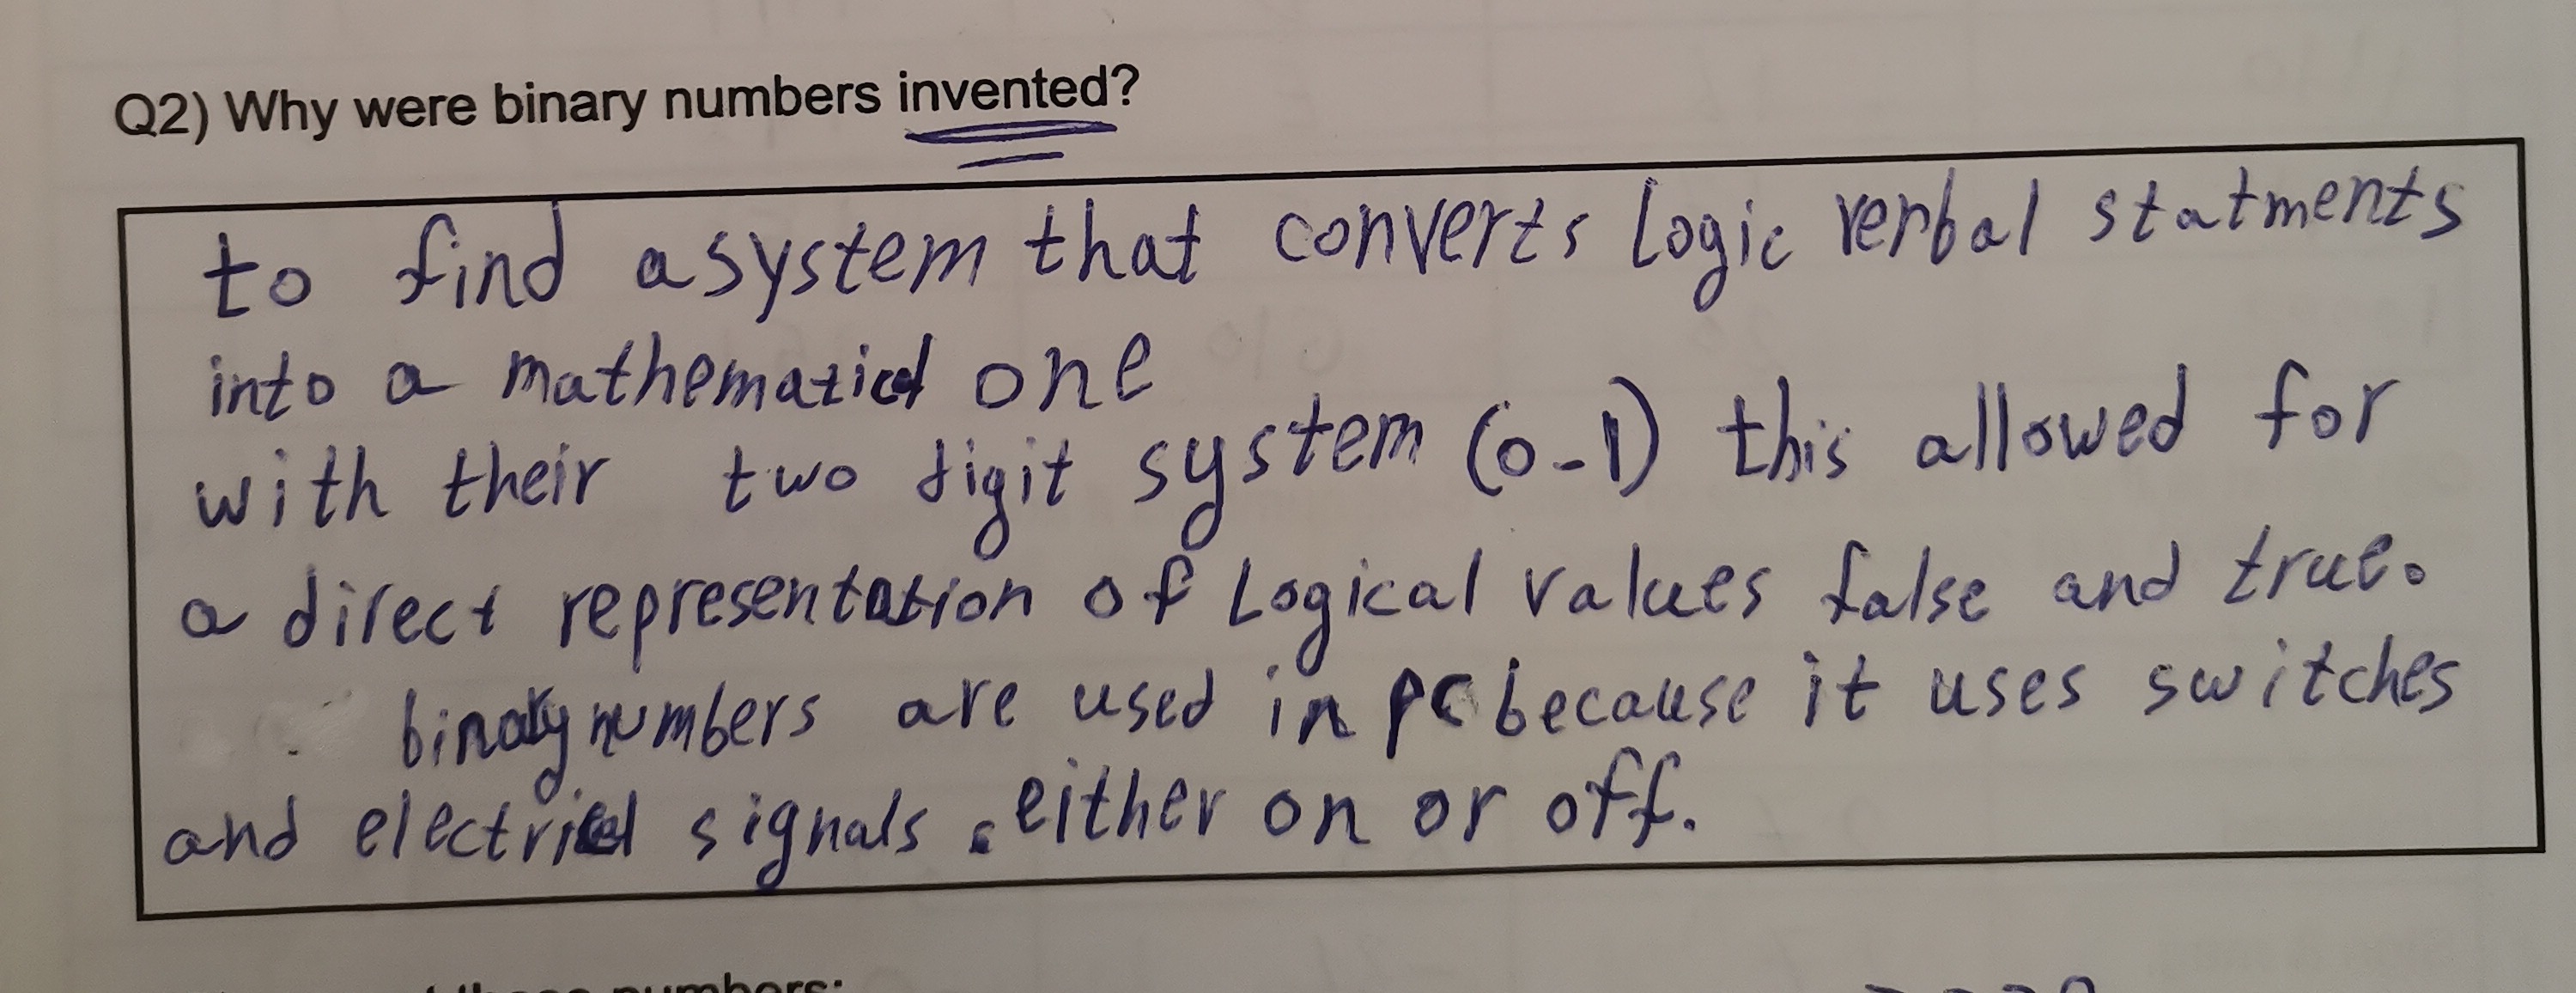 Q2) Why were binary numbers invented?
to find a system that converts logic verbal statments
into a mathematical one
with their two digit system (0-1) this allowed for
a direct representation of Logical values false and true.
binary numbers are used in pc because it uses switches
and electrical signals. either on or off.
these numbers: